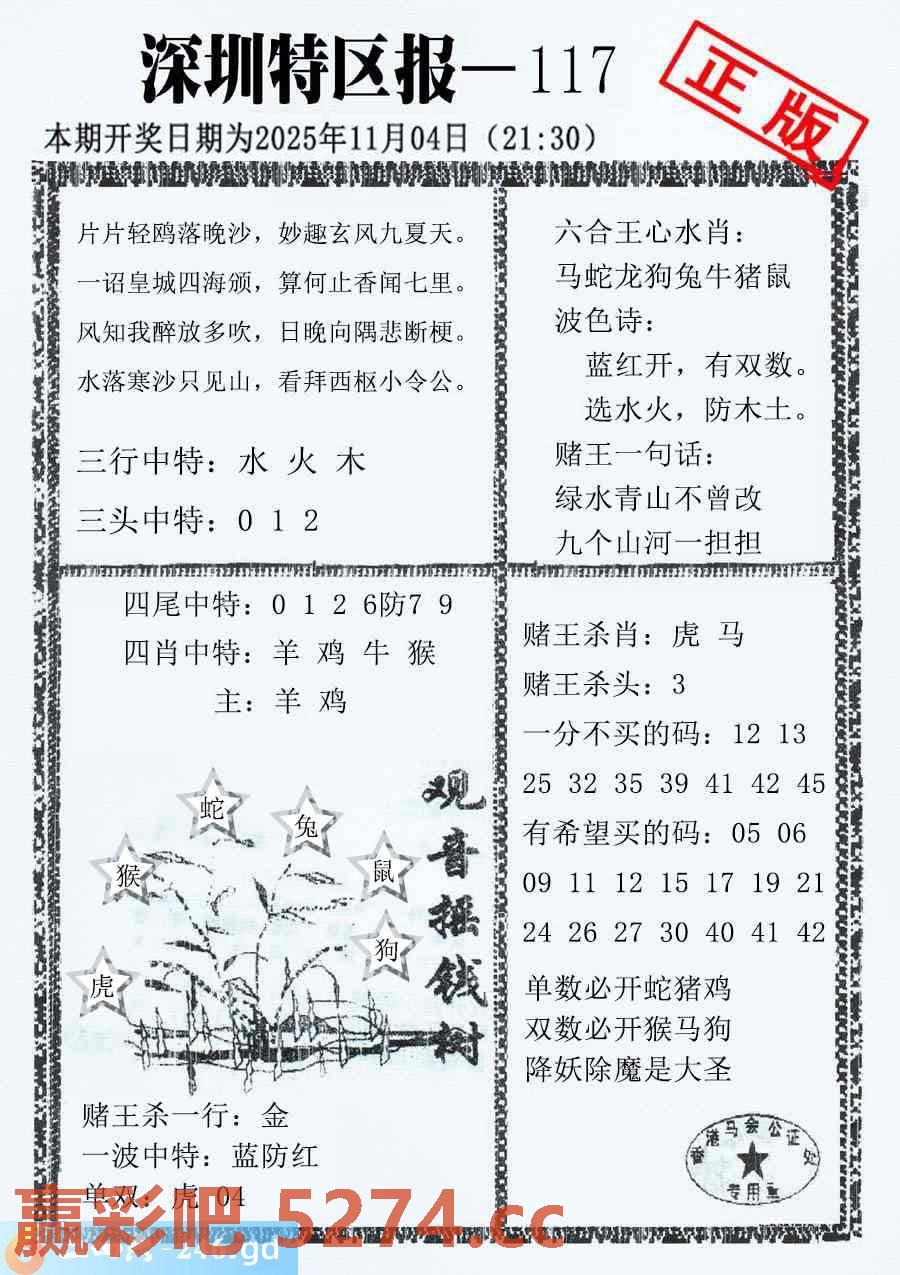 深圳特区报—117
正版
本期开奖日期为2025年11月04日（21:30）
片片轻鸥落晚沙，妙趣玄风九夏天。
一诏皇城四海颁，算何止香闻七里。
风知我醉放多吹，日晚向隅悲断梗。
水落寒沙只见山，看拜西枢小令公。
三行中特：水 火 木
三头中特：0 1 2
六合王心水肖：
马蛇龙狗兔牛猪鼠
波色诗：
蓝红开，有双数。
选水火，防木土。
赌王一句话：
绿水青山不曾改
九个山河一担担
四尾中特：0 1 2 6防7 9
四肖中特：羊 鸡 牛 猴
主：羊 鸡
观音摇钱树
蛇
兔
猴
鼠
狗
虎
赌王杀一行：金
一波中特：蓝防红
单双：虎 04
赌王杀肖：虎 马
赌王杀头：3
一分不买的码：12 13
25 32 35 39 41 42 45
有希望买的码：05 06
09 11 12 15 17 19 21
24 26 27 30 40 41 42
单数必开蛇猪鸡
双数必开猴马狗
降妖除魔是大圣
香港马会公证处
专用章
赢彩吧 5274.cc